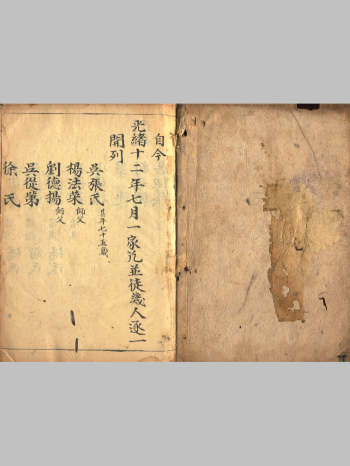 自今
光緒十二年七月一家氿並徒幾人逐一
開列
吳張氏 其年七十五歲
楊法菜 師父
劉德揚 師父
吳從第
徐氏